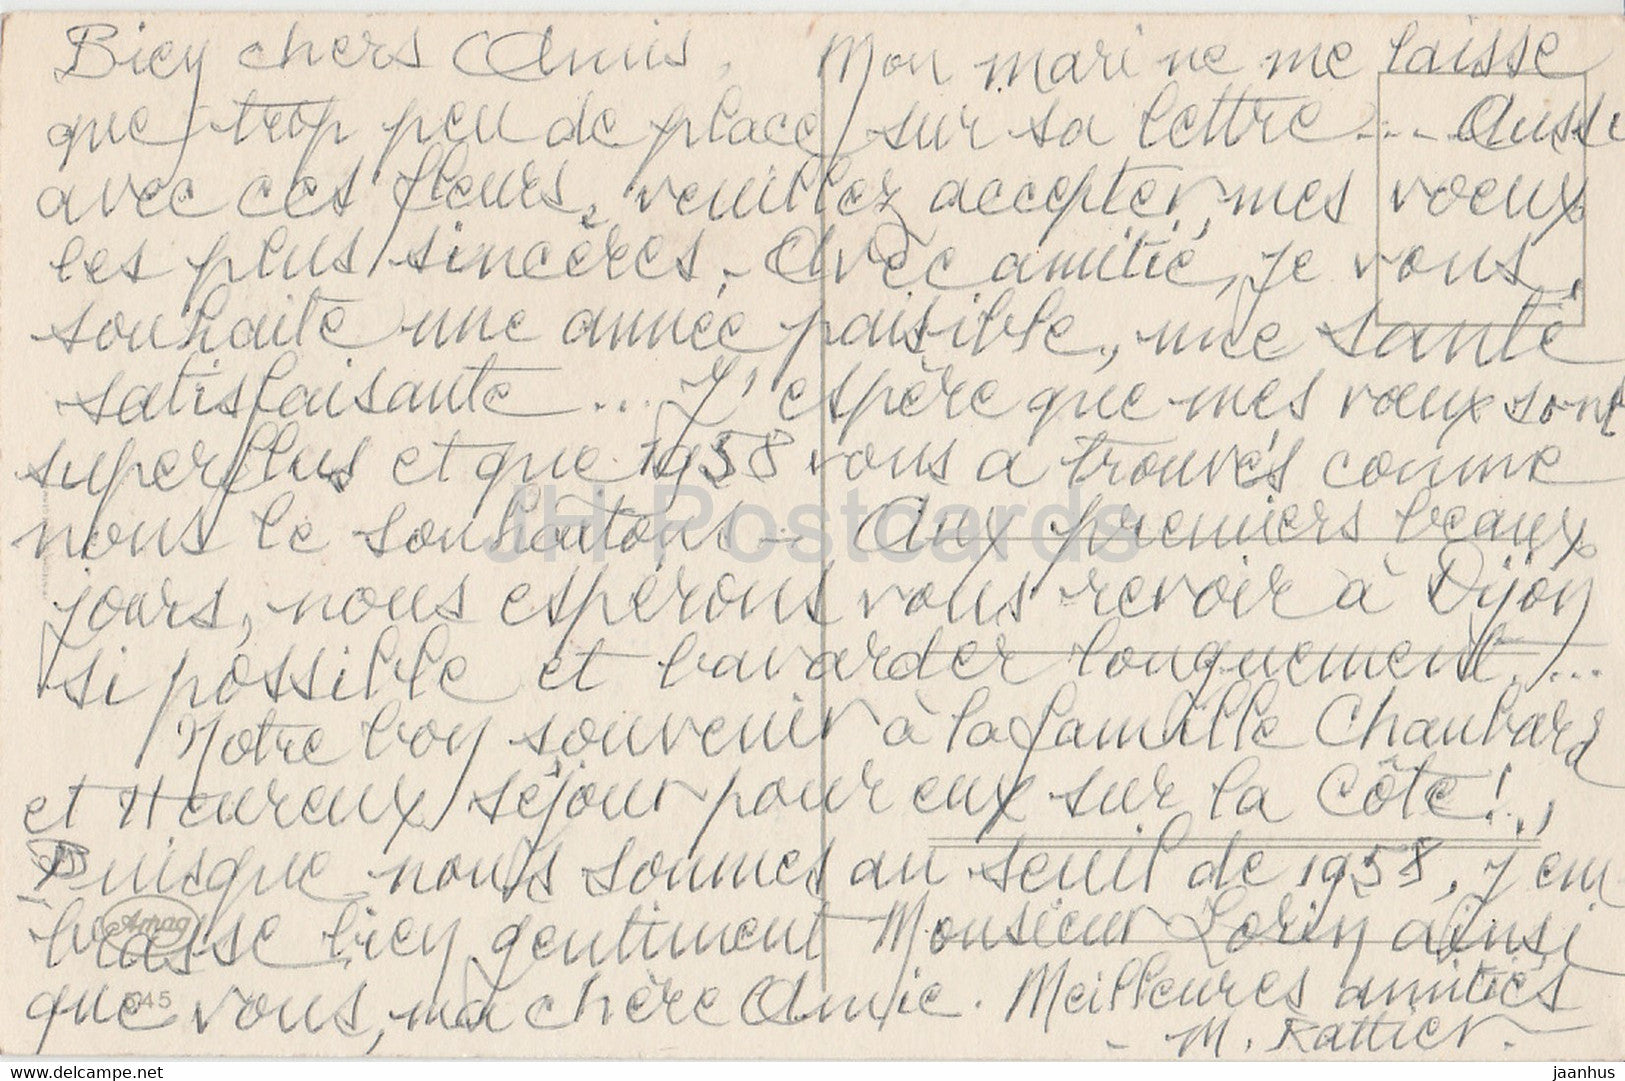 Bien chers Amis, Mon mari ne me laisse
que trop peu de place sur sa lettre... Aussi
avec ces fleurs, veuillez accepter, mes voeux
les plus sincères. Avec amitié, je vous
souhaite une année paisible, une santé
satisfaisante... J'espère que mes voeux sont
superflus et que 1958 vous a trouvés comme
nous le souhaitons - Aux premiers beaux
jours, nous espérons vous revoir à Dijon
si possible et bavarder longuement....
Notre bon souvenir à la famille Chaubard
et Heureux séjour pour eux sur la Côte!..
Puisque nous sommes au seuil de 1958, j'em
brasse bien gentiment Monsieur Lorin ainsi
que vous, ma chère Amie. Meilleures amitiés
- M. Rattier.
JH Postcards
Amag
645
www.delcampe.net
jaanhus